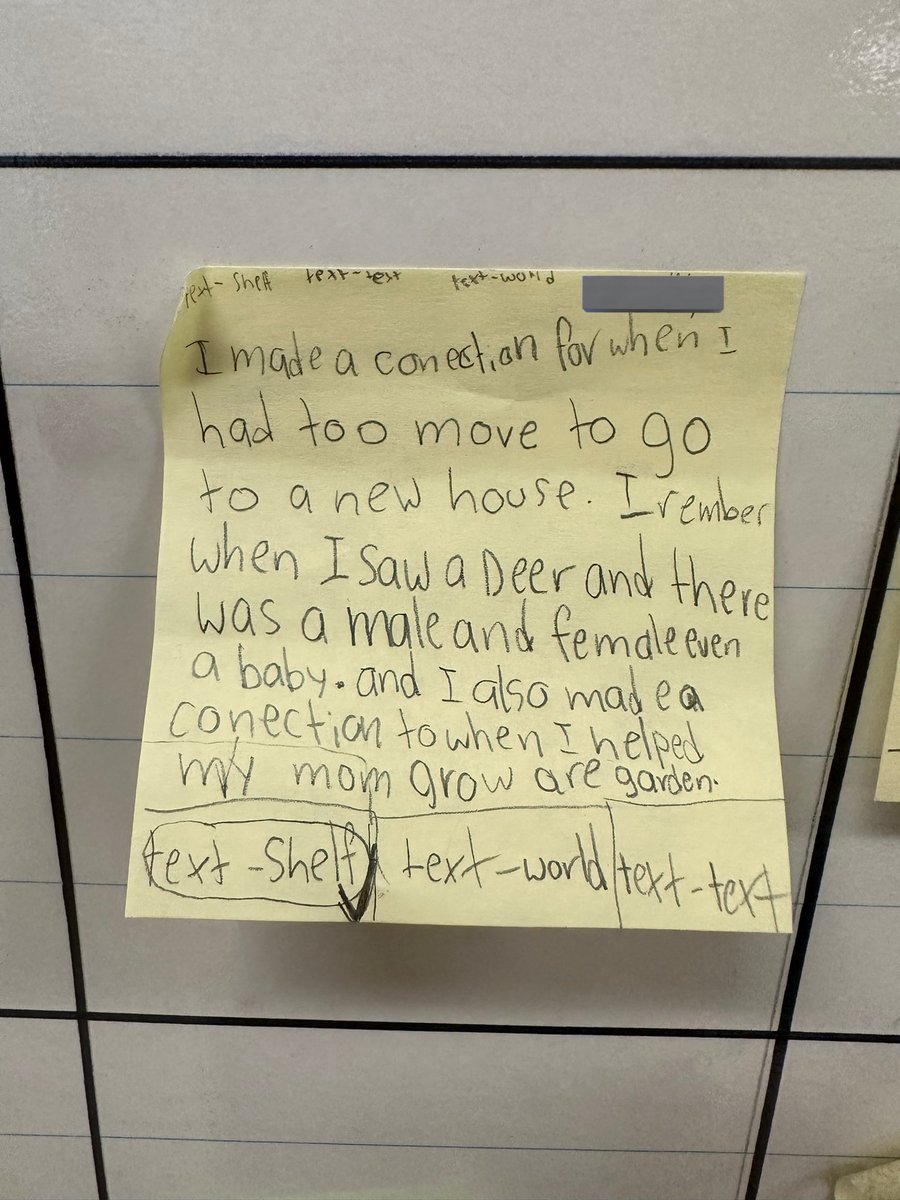 text-Shelf text-text text-world
I made a conection for when I
had too move to go
to a new house. I rember
when I saw a Deer and there
was a male and female even
a baby. and I also made a
conection to when I helped
my mom grow are garden.
text-Shelf text-world text-text